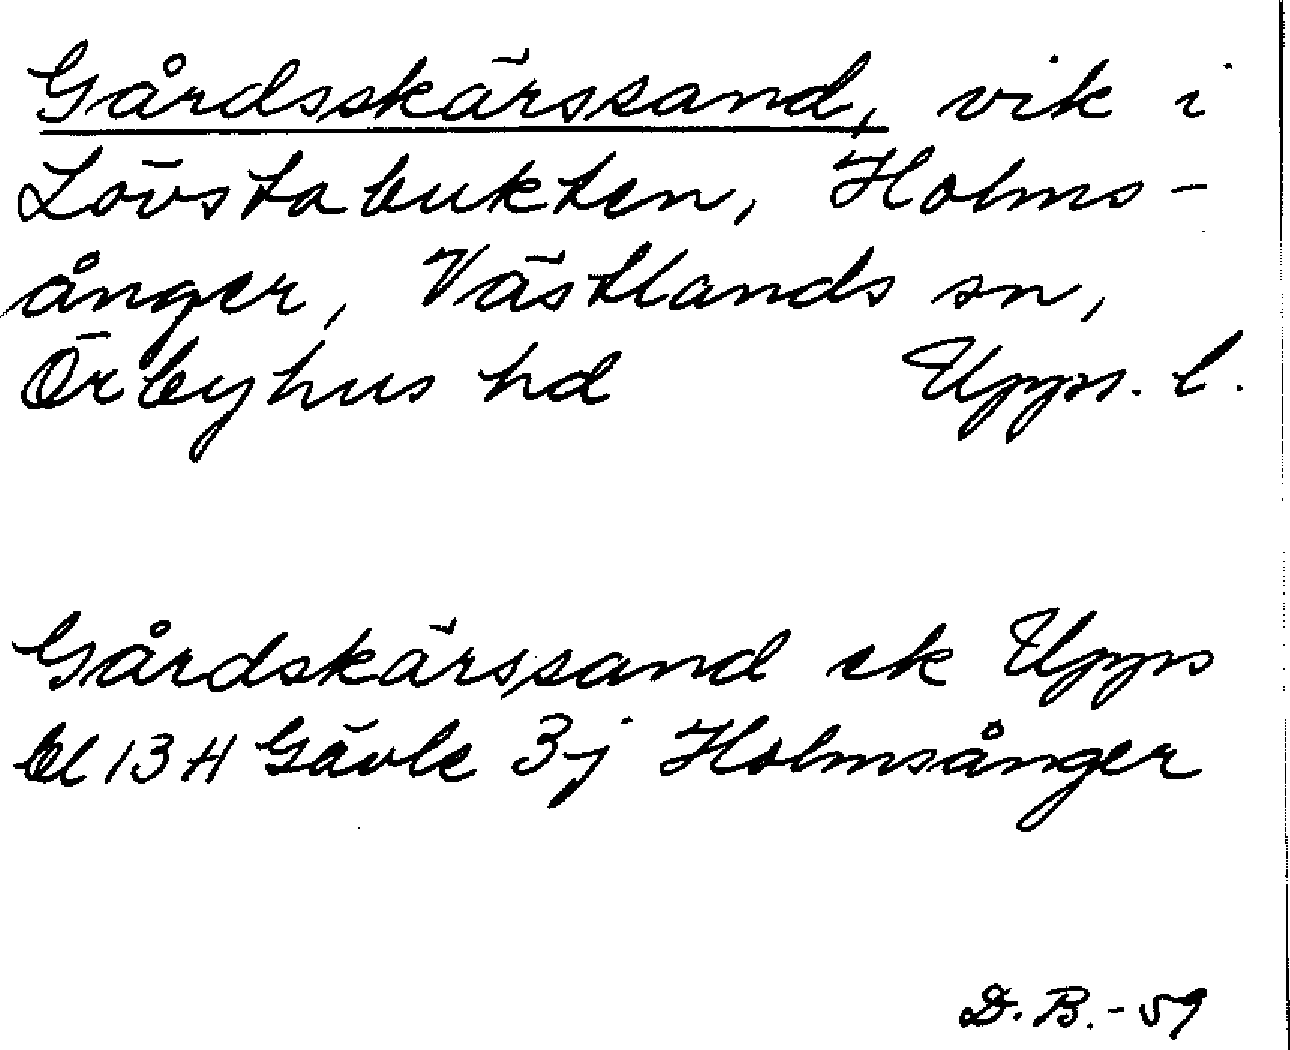 Gårdsskärssand, vik i
Lövstabukten, Holms-
ånger, Västlands sn,
Örbyhus hd Upps. l.
Gårdskärssand ek Upps
bl 13 H Gävle 3j Holmsånger
D. B. - 59